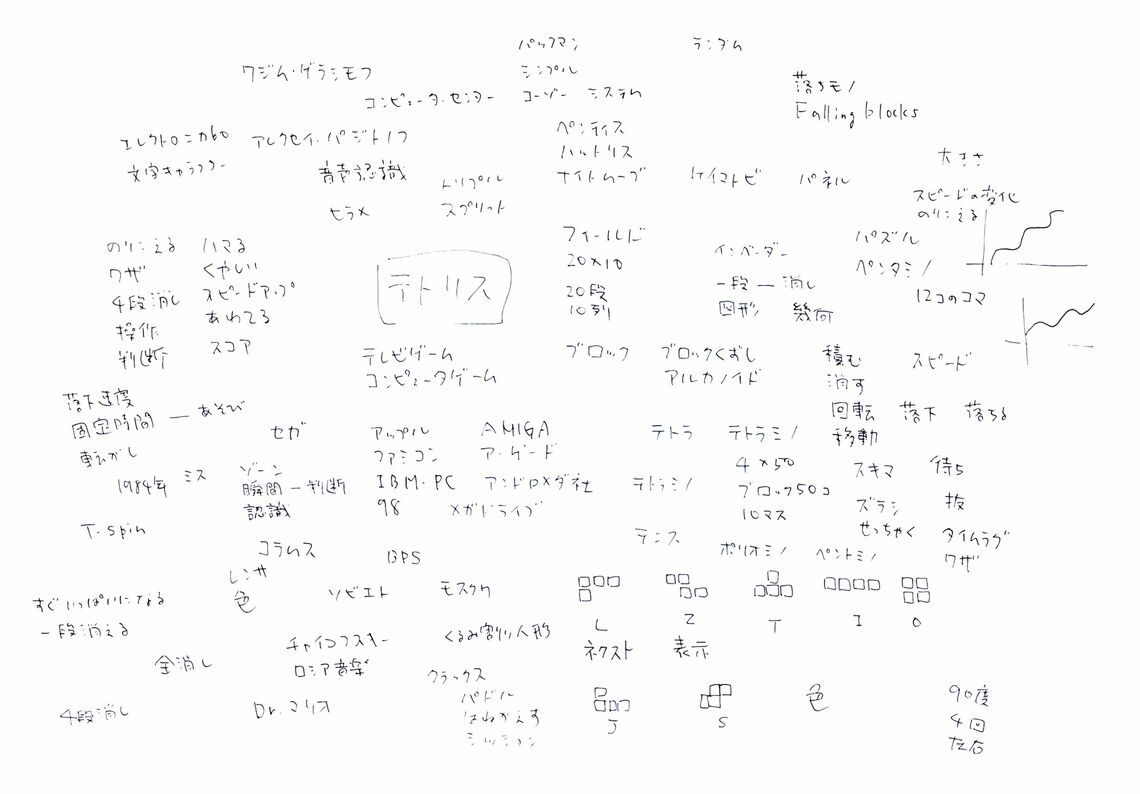 パックマン
ランダム
ワジム・ゲラシモフ
シンプル
落ちモノ
コンピュータ・センター
コーゾー システム
Falling blocks
エレクトロニカ60
アレクセイ・パジトノフ
ペンティス
ハットリス
文字キャラクター
音声認識
トリプル
ナイトムーブ
パネル
大きさ
ヒラメ
スプリット
スピードの変化
のりこえる
のりこえる
ハマる
フィールド
インベーダー
パズル
ワザ
くやしい
テトリス
20×10
ペンタミノ
4段消し
スピードアップ
20段
一段 — 消し
12コのコマ
操作
あわてる
10列
図形
幾何
判断
スコア
テレビゲーム
ブロック
ブロックくずし
積む
スピード
コンピュータゲーム
アルカノイド
消す
落下速度
回転
落下
落ちる
固定時間 — あそび
移動
転がし
セガ
アップル
AMIGA
テトラ
テトラミノ
ファミコン
ア・ゲード
4×50
スキマ
待ち
1984年
ミス
ゾーン
瞬間 — 判断
IBM・PC
アンドロメダ社
テトラミノ
ブロック50コ
ズラシ
抜
認識
98
メガドライブ
10マス
せっちゃく
タイムラグ
T-spin
テニス
ワザ
コラムス
BPS
ポリオミノ
ペントミノ
レンサ
色
ソビエト
モスクワ
すぐいっぱいになる
一段消える
L
Z
T
I
O
チャイコフスキー
くるみ割り人形
ネクスト
表示
全消し
ロシア音楽
クラックス
パドル
色
90度
4段消し
Dr.マリオ
はねかえす
J
S
4回
ミッション
左右